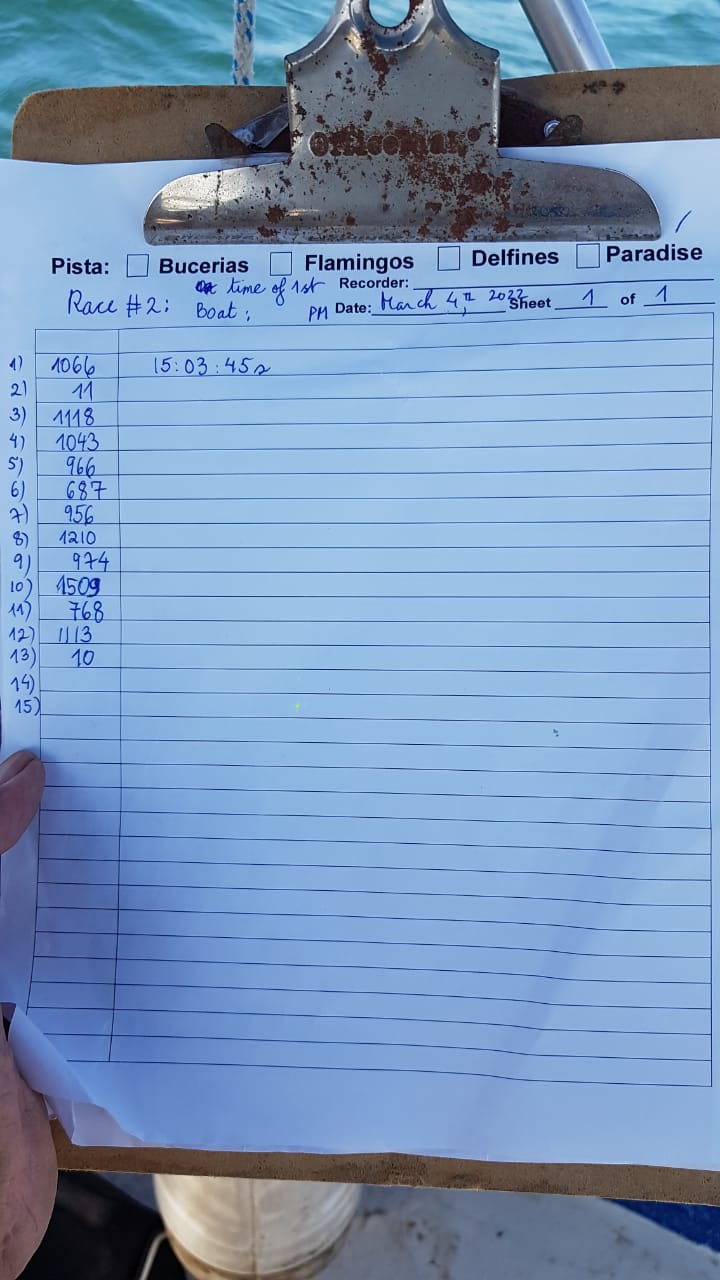 OfficeMax
Pista: Bucerias Flamingos Delfines Paradise
Race #2: time of 1st Recorder:
Boat: PM Date: March 4th, 2022 Sheet 1 of 1
1) 1066 15:03:45
2) 11
3) 1118
4) 1043
5) 966
6) 687
7) 956
8) 1210
9) 974
10) 1509
11) 768
12) 1113
13) 10
14)
15)